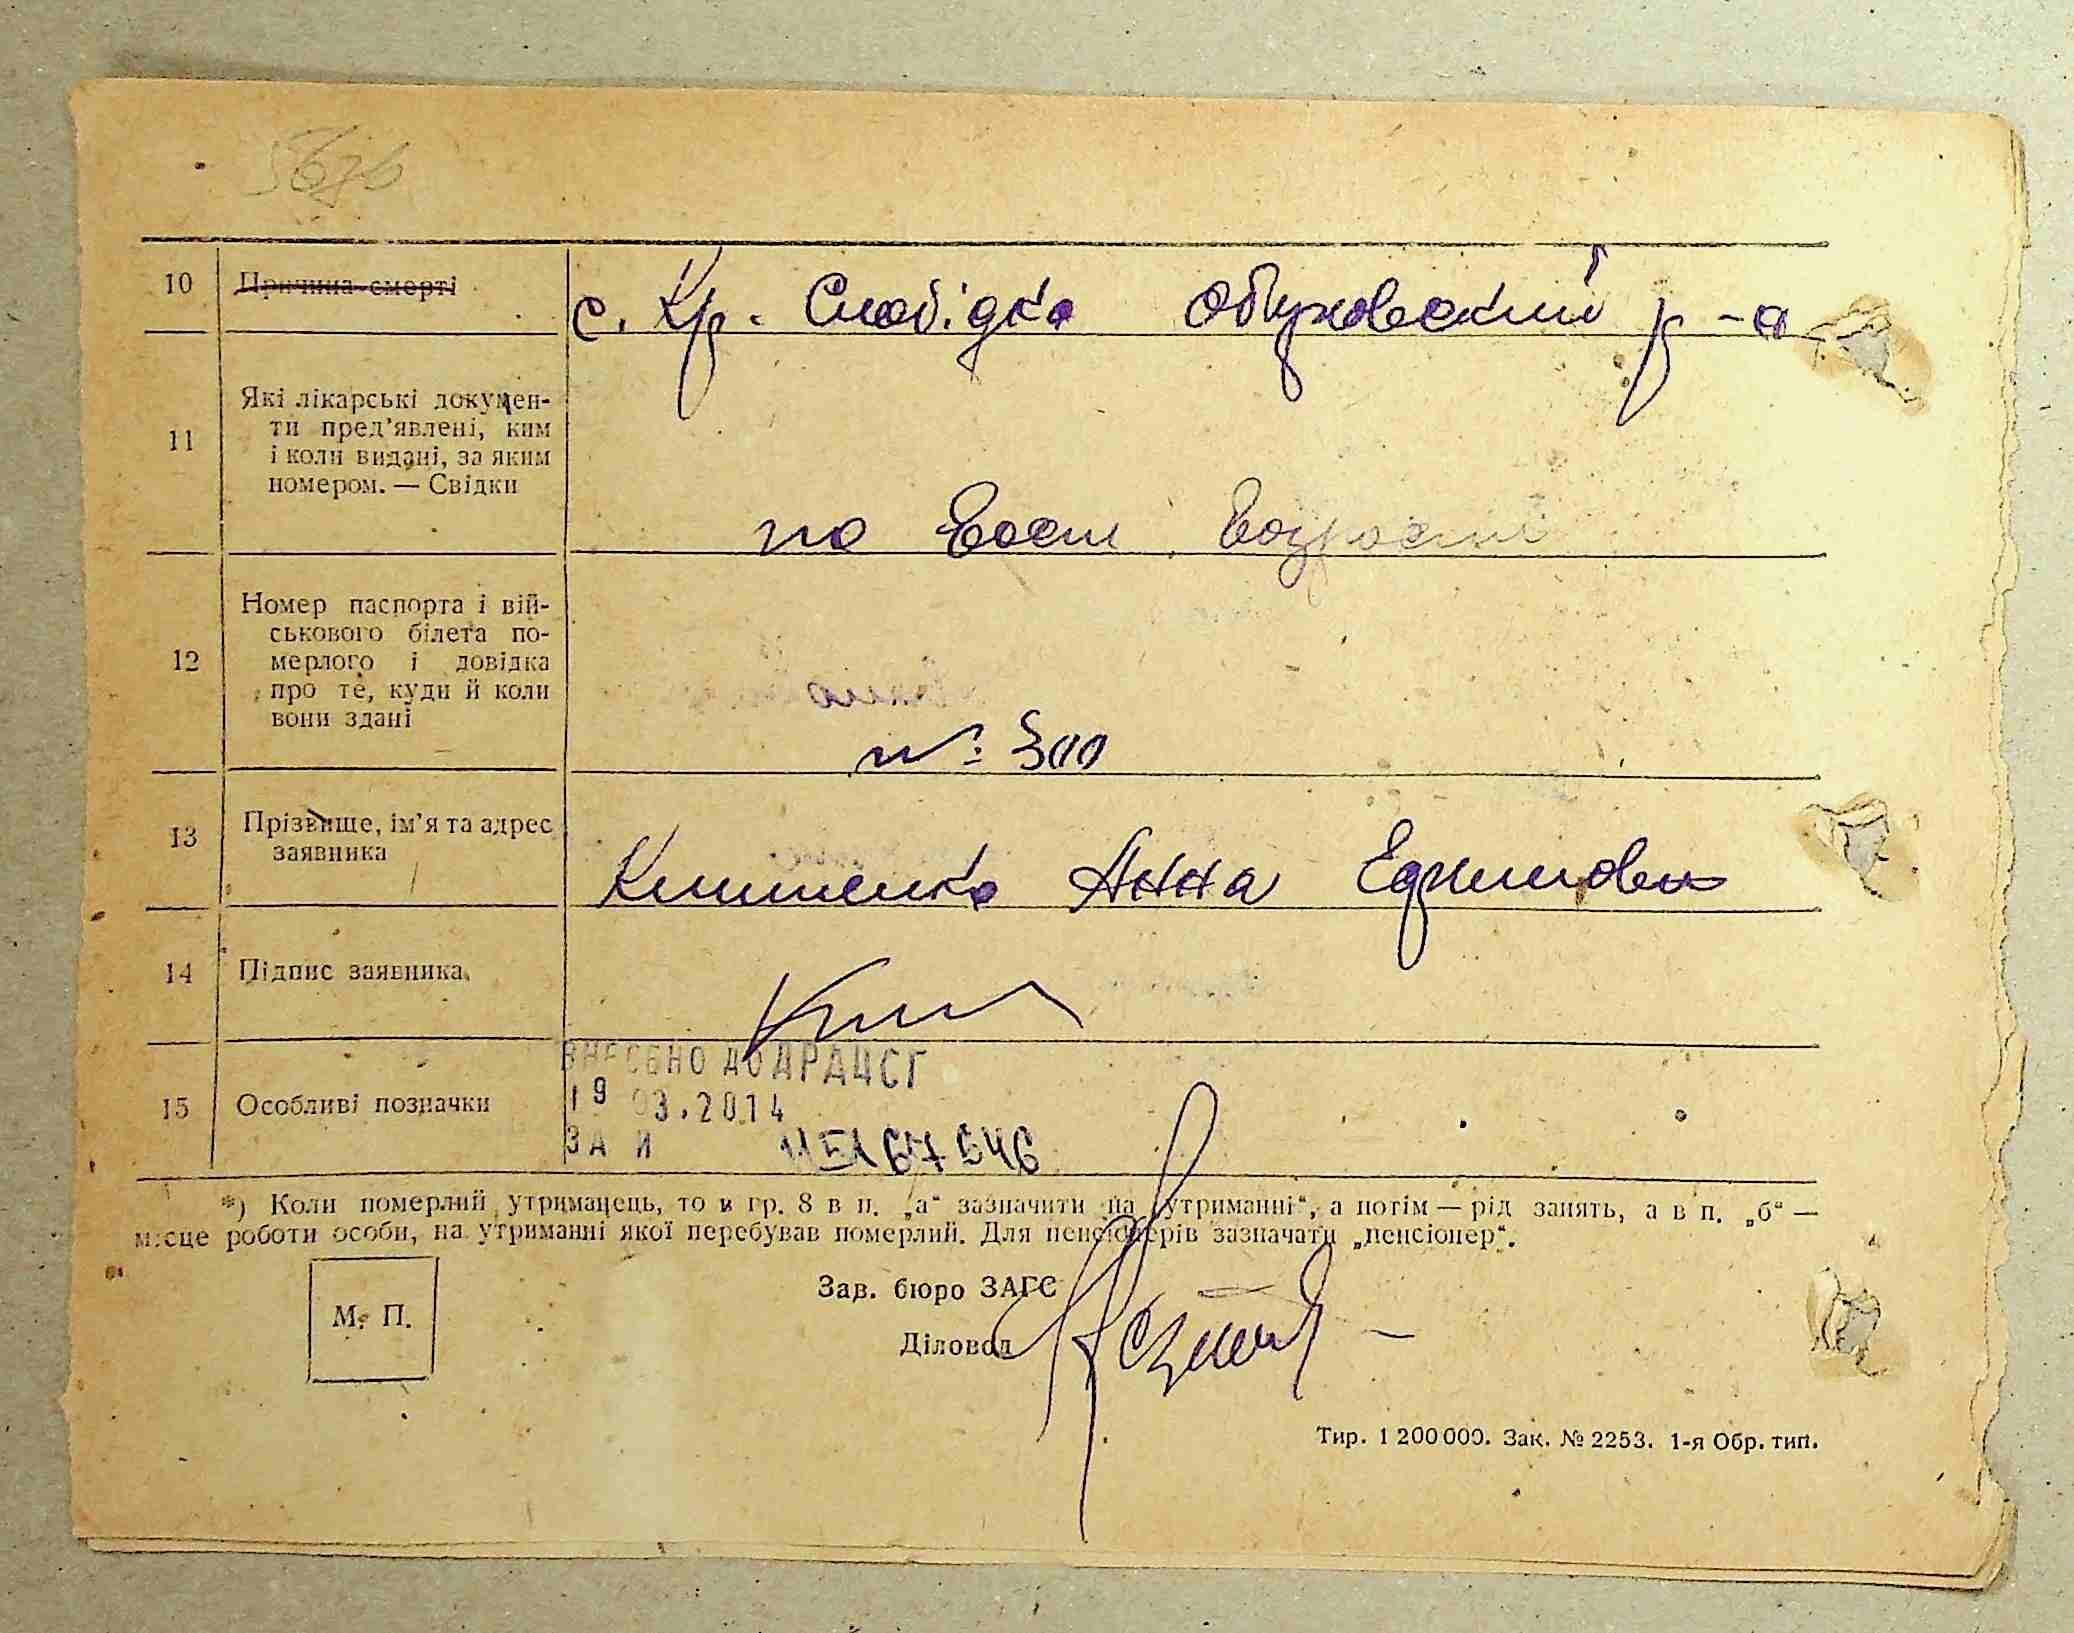 5676
10 Причина смерті с. Кр. Слобідка Обуховский р-а
11 Які лікарські докумен-
ти пред’явлені, ким
і коли видані, за яким
номером. — Свідки
по Возрасти
12 Номер паспорта і вій-
ськового білета по-
мерлого і довідка
про те, куди й коли
вони здані
№ 300
13 Прізвище, ім’я та адрес
заявника
Анна
14 Підпис заявника
ВНЕСЕНО ДО ДРАЦСГ
15 Особливі позначки 19 03.2014
ЗА №
*) Коли померлий утриманець, то в гр. 8 в п. „а“ зазначити „на утриманні“, а потім — рід занять, а в п. „б“ —
місце роботи особи, на утриманні якої перебував померлий. Для пенсіонерів зазначати „пенсіонер“.
М. П.
Зав. бюро ЗАГС
Діловод
Тир. 1 200 000. Зак. № 2253. 1-я Обр. тип.